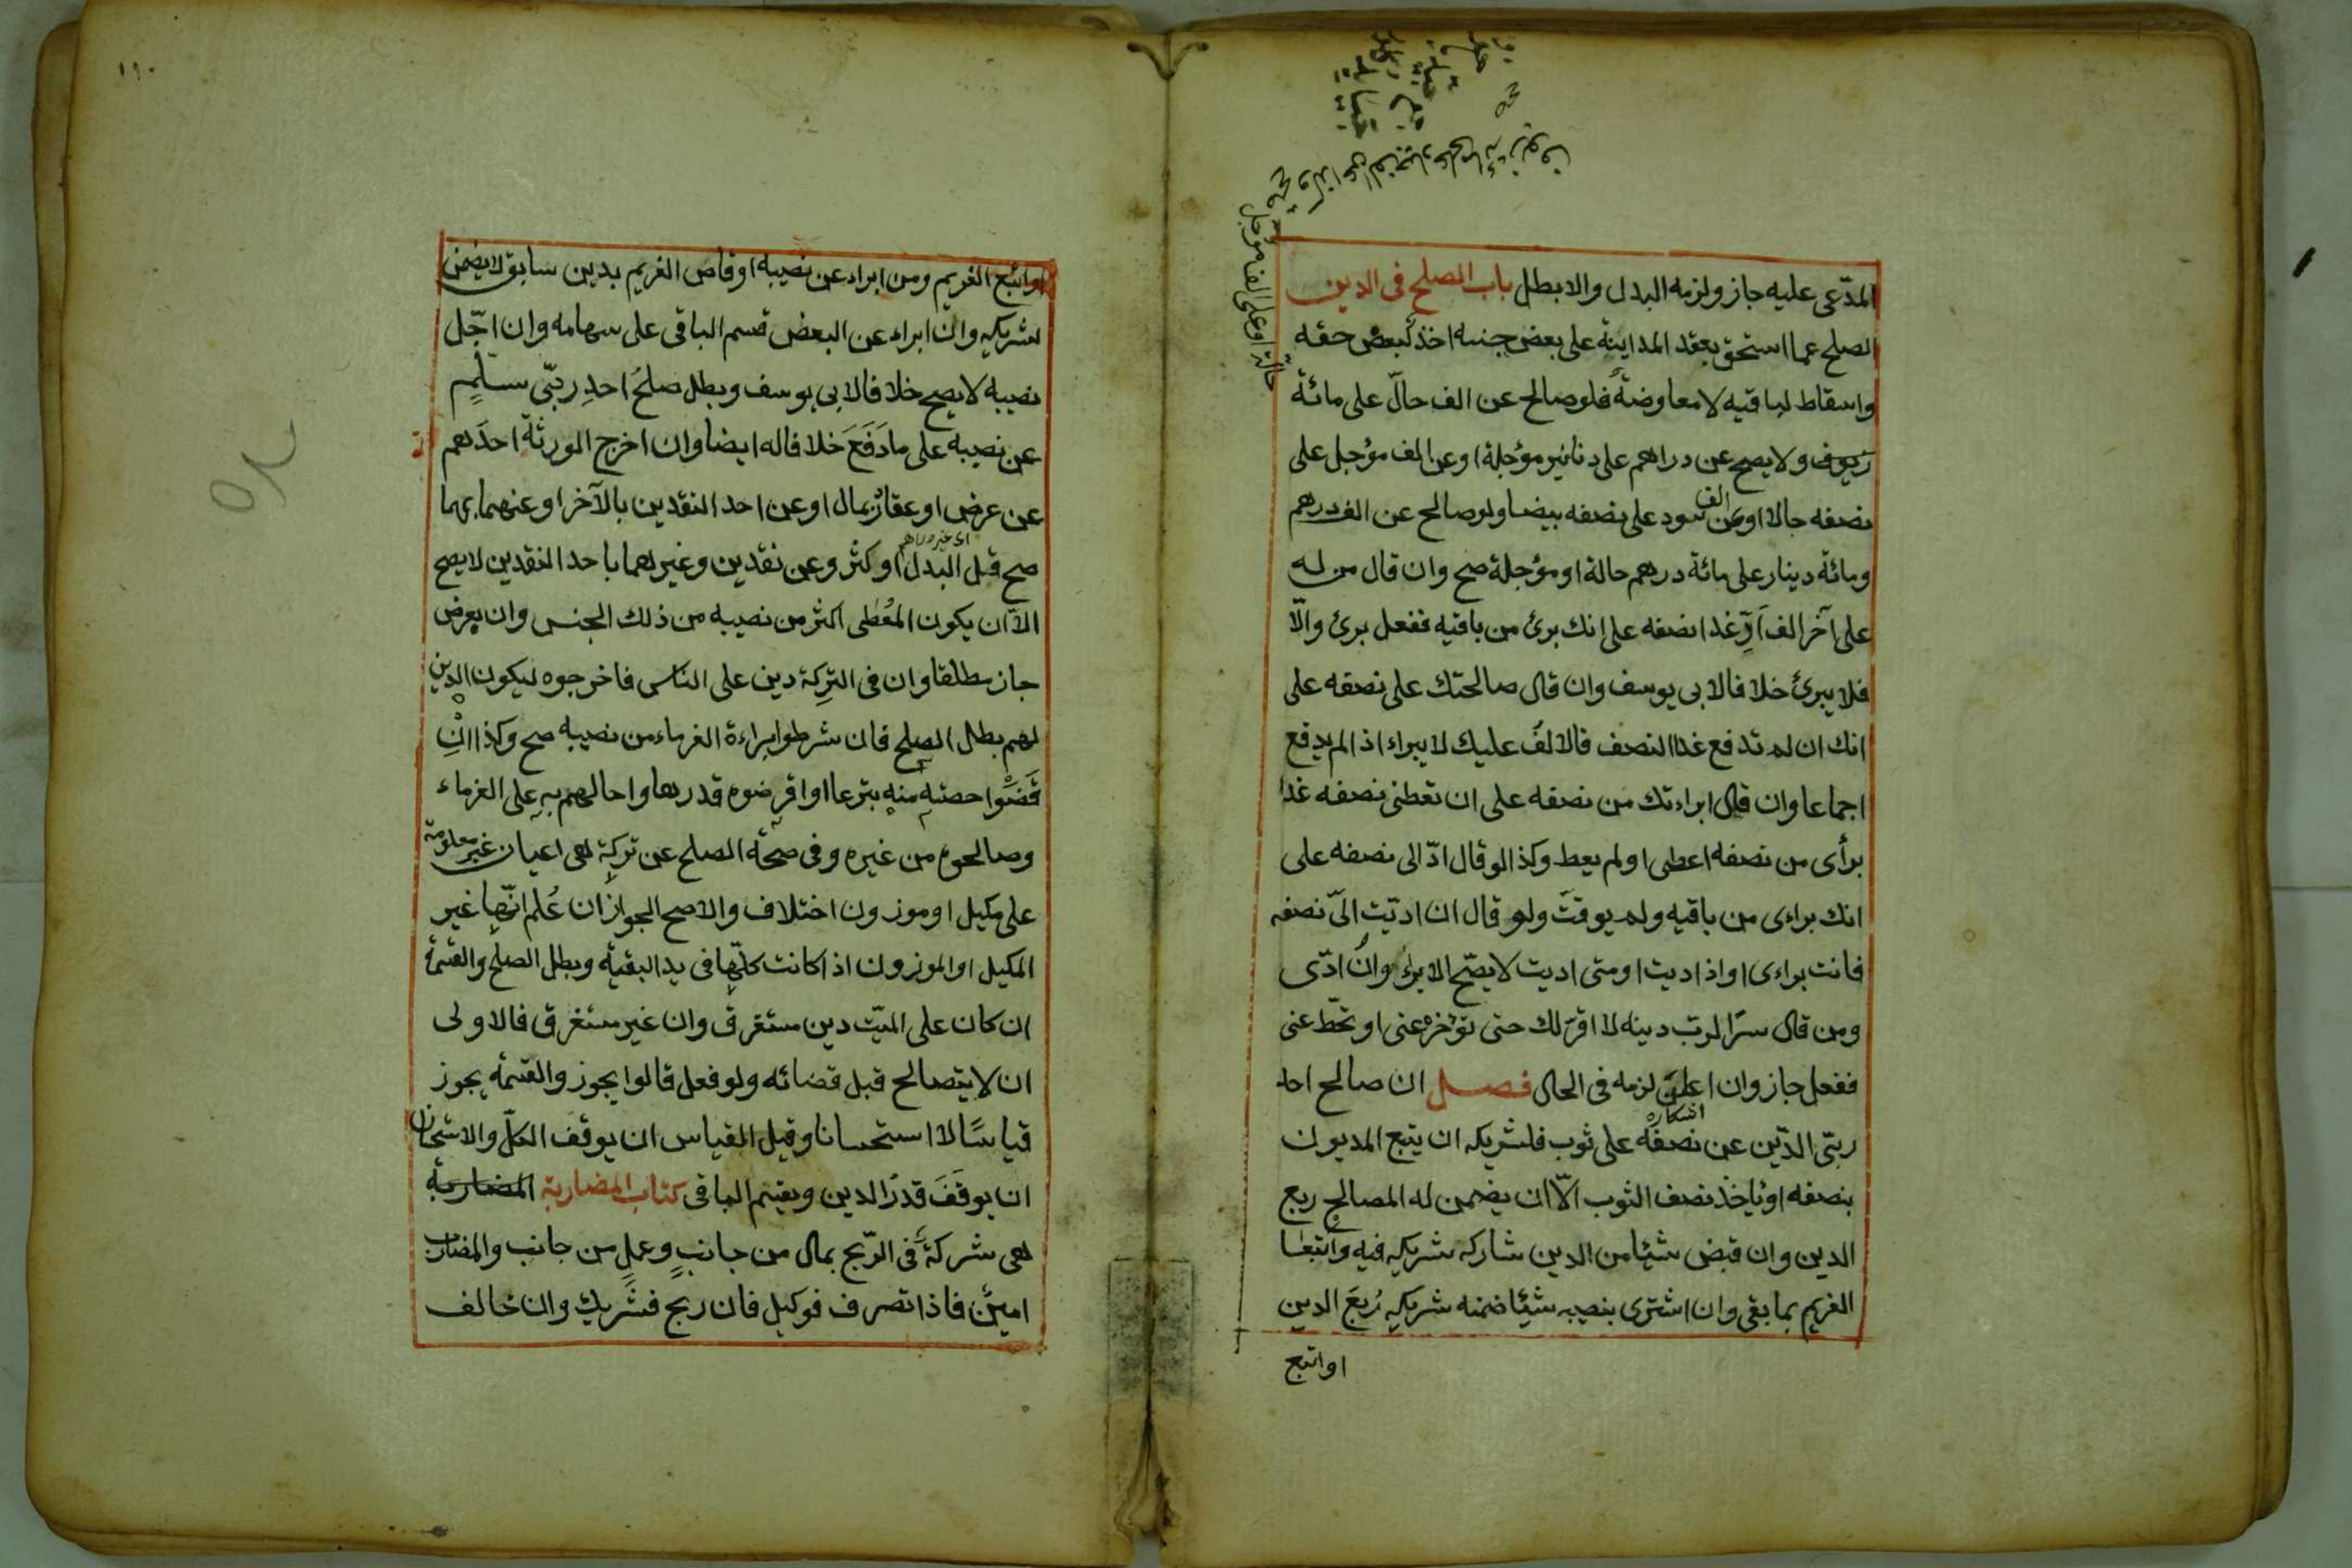 المدّعى عليه جاز ولزمه البدل والا بطل باب الصلح فى الدين
الصلح عما استحق بعقد المداينة على بعض جنسه اخذ لبعض حقه
واسقاط لباقيه لا معاوضة فلو صالح عن الف حالّ على مائة
حالة او على الف مؤجل
زيوف ولا يصح عن دراهم على دنانير مؤجلة او عن الف مؤجل على
نصفه حالا او عن الف سود على نصفه بيضا ولو صالح عن الف درهم
ومائة دينار على مائة درهم حالة او مؤجلة صح وان قال من له
على آخر الف ادّ غدا نصفه على انك برئ من باقيه ففعل برئ والّا
فلا يبرئ خلافا لابى يوسف وان قال صالحتك على نصفه على
انك ان لم تدفع غدا النصف فالالف عليك لا يبراء اذا لم يدفع
اجماعا وان قال ابراءتك من نصفه على ان تعطنى نصفه غدا
برأى من نصفه اعطى او لم يعط وكذا لو قال ادّ الى نصفه على
انك براءى من باقيه ولم يوقت ولو قال ان اديّت الىّ نصفه
فانت براءى او اذا اديت او متى اديت لا يصّح الابراء وان ادّى
ومن قال سرّا لرب دينه لا اقرّ لك حتى تؤخره عنى او تحّط عنى
ففعل جاز وان اعلن لزمه فى الحال فصل ان صالح احد
اشكاره
ربّى الدّين عن نصفه على ثوب فلشريكه ان يتبع المديون
بنصفه او ياخذ نصف الثوب الّا ان يضمن له المصالح ربع
الدين وان قبض شيئا من الدين شاركه شريكه فيه واتبعا
الغريم بما بقى وان اشترى بنصيبه شيئا ضمنه شريكه رُبعَ الدين
او اتبع
١٩٠
او اتبع الغريم ومن ابراء عن نصيبه او قاص الغريم بدين سابق لا يضمن
لشريكه وان ابراء عن البعض قسم الباقى على سهامه وان اجّل
نصيبه لا يصح خلافا لابى يوسف وبطل صلحُ احدِ ربّى سلمٍ
عن نصيبه على ما دَفَعَ خلافا له ايضا وان اخرج الورثة احدَهم
عن عرض او عقار بمال او عن احد النقدين بالآخر او عنهما بهما
صح قبل البدل او كثر وعن نقدين وغيرهما باحد النقدين لا يصح
الّا ان يكون المُعْطى اكثر من نصيبه من ذلك الجنس وان بعرض
جاز مطلقا وان فى التركة دين على الناس فاخرجوه ليكون الدين
لهم بطل الصلح فان شرطوا براءة الغرماء من نصيبه صح وكذا انِ
قَضَوْا حصته منه تبرعا او اقرضوه قدرها واحالهم به على الغرماء
وصالحوه من غيره وفى صحّة الصلح عن تركة هى اعيان غير معلومة
على مكيل او موزون اختلاف والاصح الجواز ان عُلم انّها غير
المكيل او الموزون اذا كانت كلّها فى يد البقيّه وبطل الصلح والقسمة
ان كان على الميّت دين مستغرق وان غير مستغرق فالاولى
ان لا يتصالح قبل قضائه ولو فعل قالوا يجوز والقسمة يجوز
قياسًا لا استحسانا وقيل القياس ان يوقف الكلّ والاستحسان
ان يوقَفَ قدرُ الدين ويقسم الباقى كتاب المضاربة المضاربة
هى شركة فى الرّبح بمال من جانبٍ وعملٍ من جانب والمضارب
امينٌ فاذا تصرف فوكيل فان ربح فشَريك وان خالف